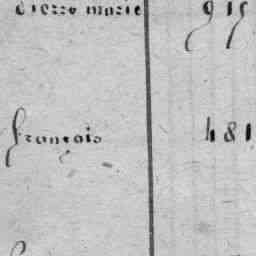 pierre marie 915
françois 481